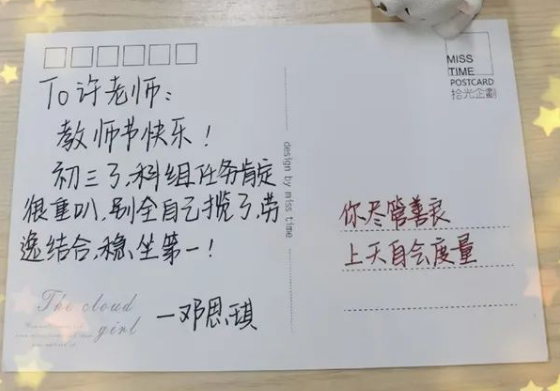 To许老师:
教师节快乐!
初三了,科组任务肯定
很重叭,别全自己揽了,劳
逸结合,稳坐第一!
—邓恩琪
The cloud
girl
design by miss time
MISS
TIME
POSTCARD
拾光企劃
你尽管善良
上天自会度量